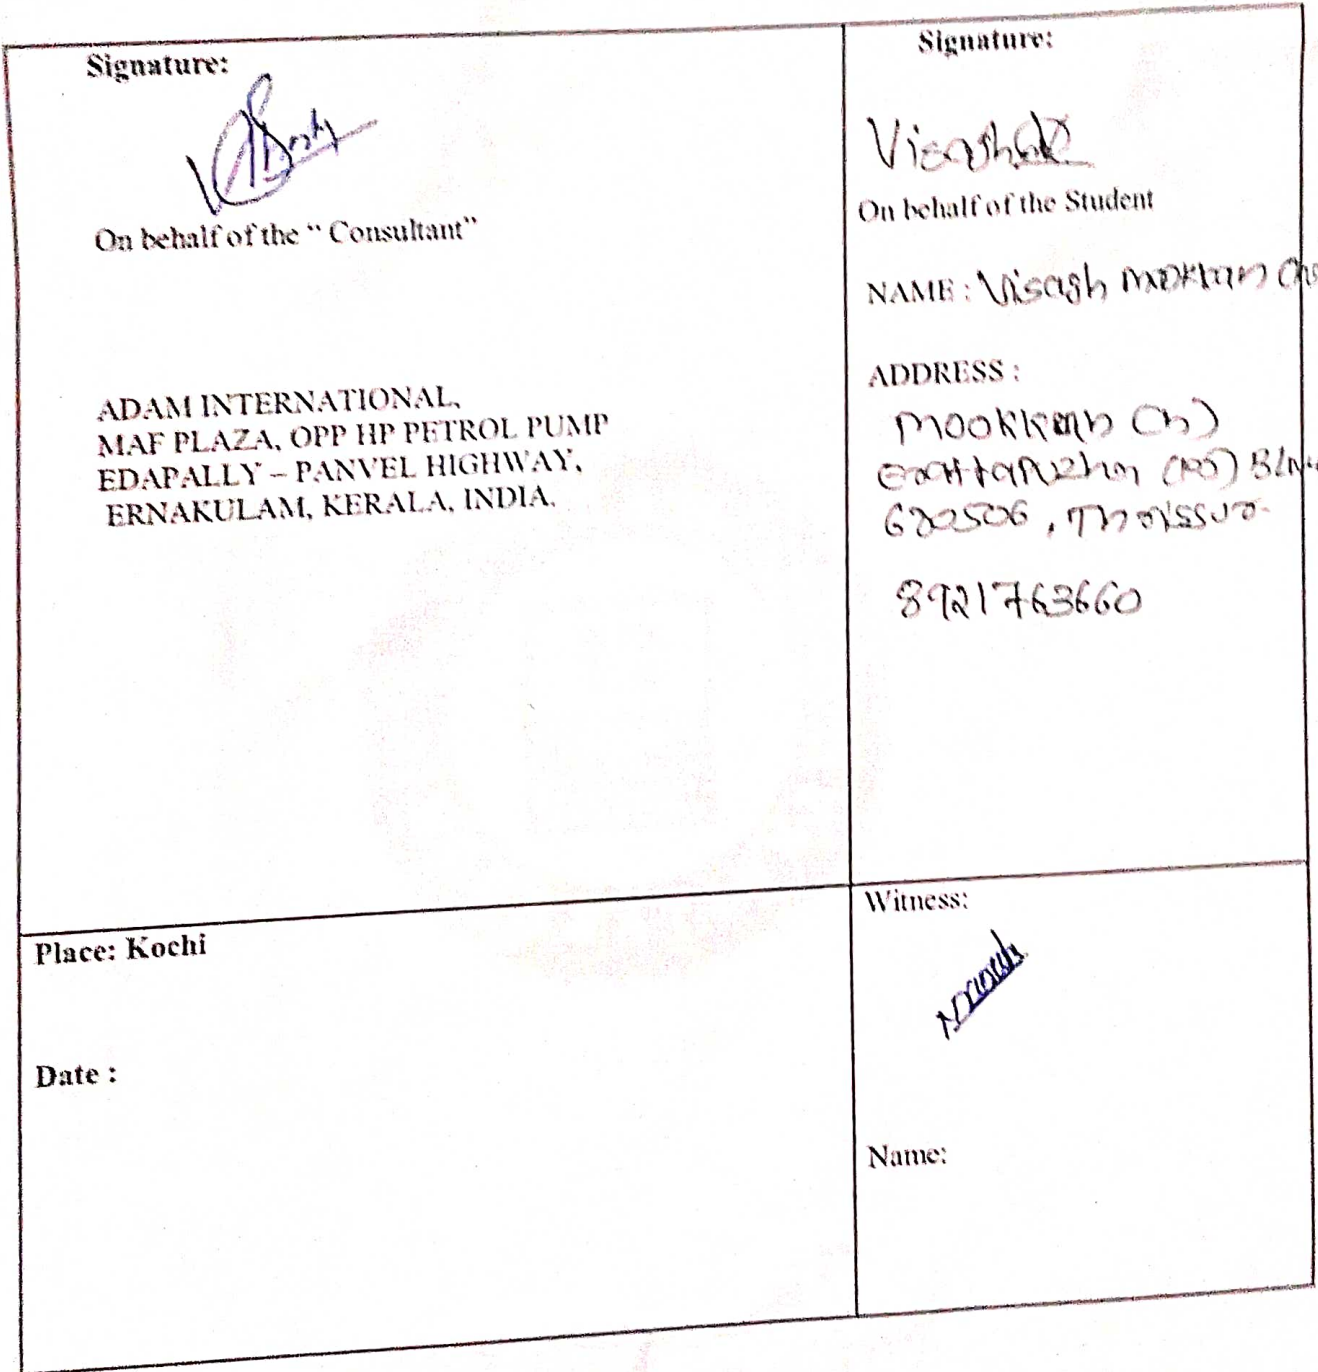 Signature:
On behalf of the " Consultant"
ADAM INTERNATIONAL,
MAF PLAZA, OPP HP PETROL PUMP
EDAPALLY – PANVEL HIGHWAY,
ERNAKULAM, KERALA, INDIA.
Signature:
Visagh
On behalf of the Student
NAME : Visagh
ADDRESS :
Mookkan (h)
680506, Thrissur
8921763660
Place: Kochi
Date :
Witness:
Name: